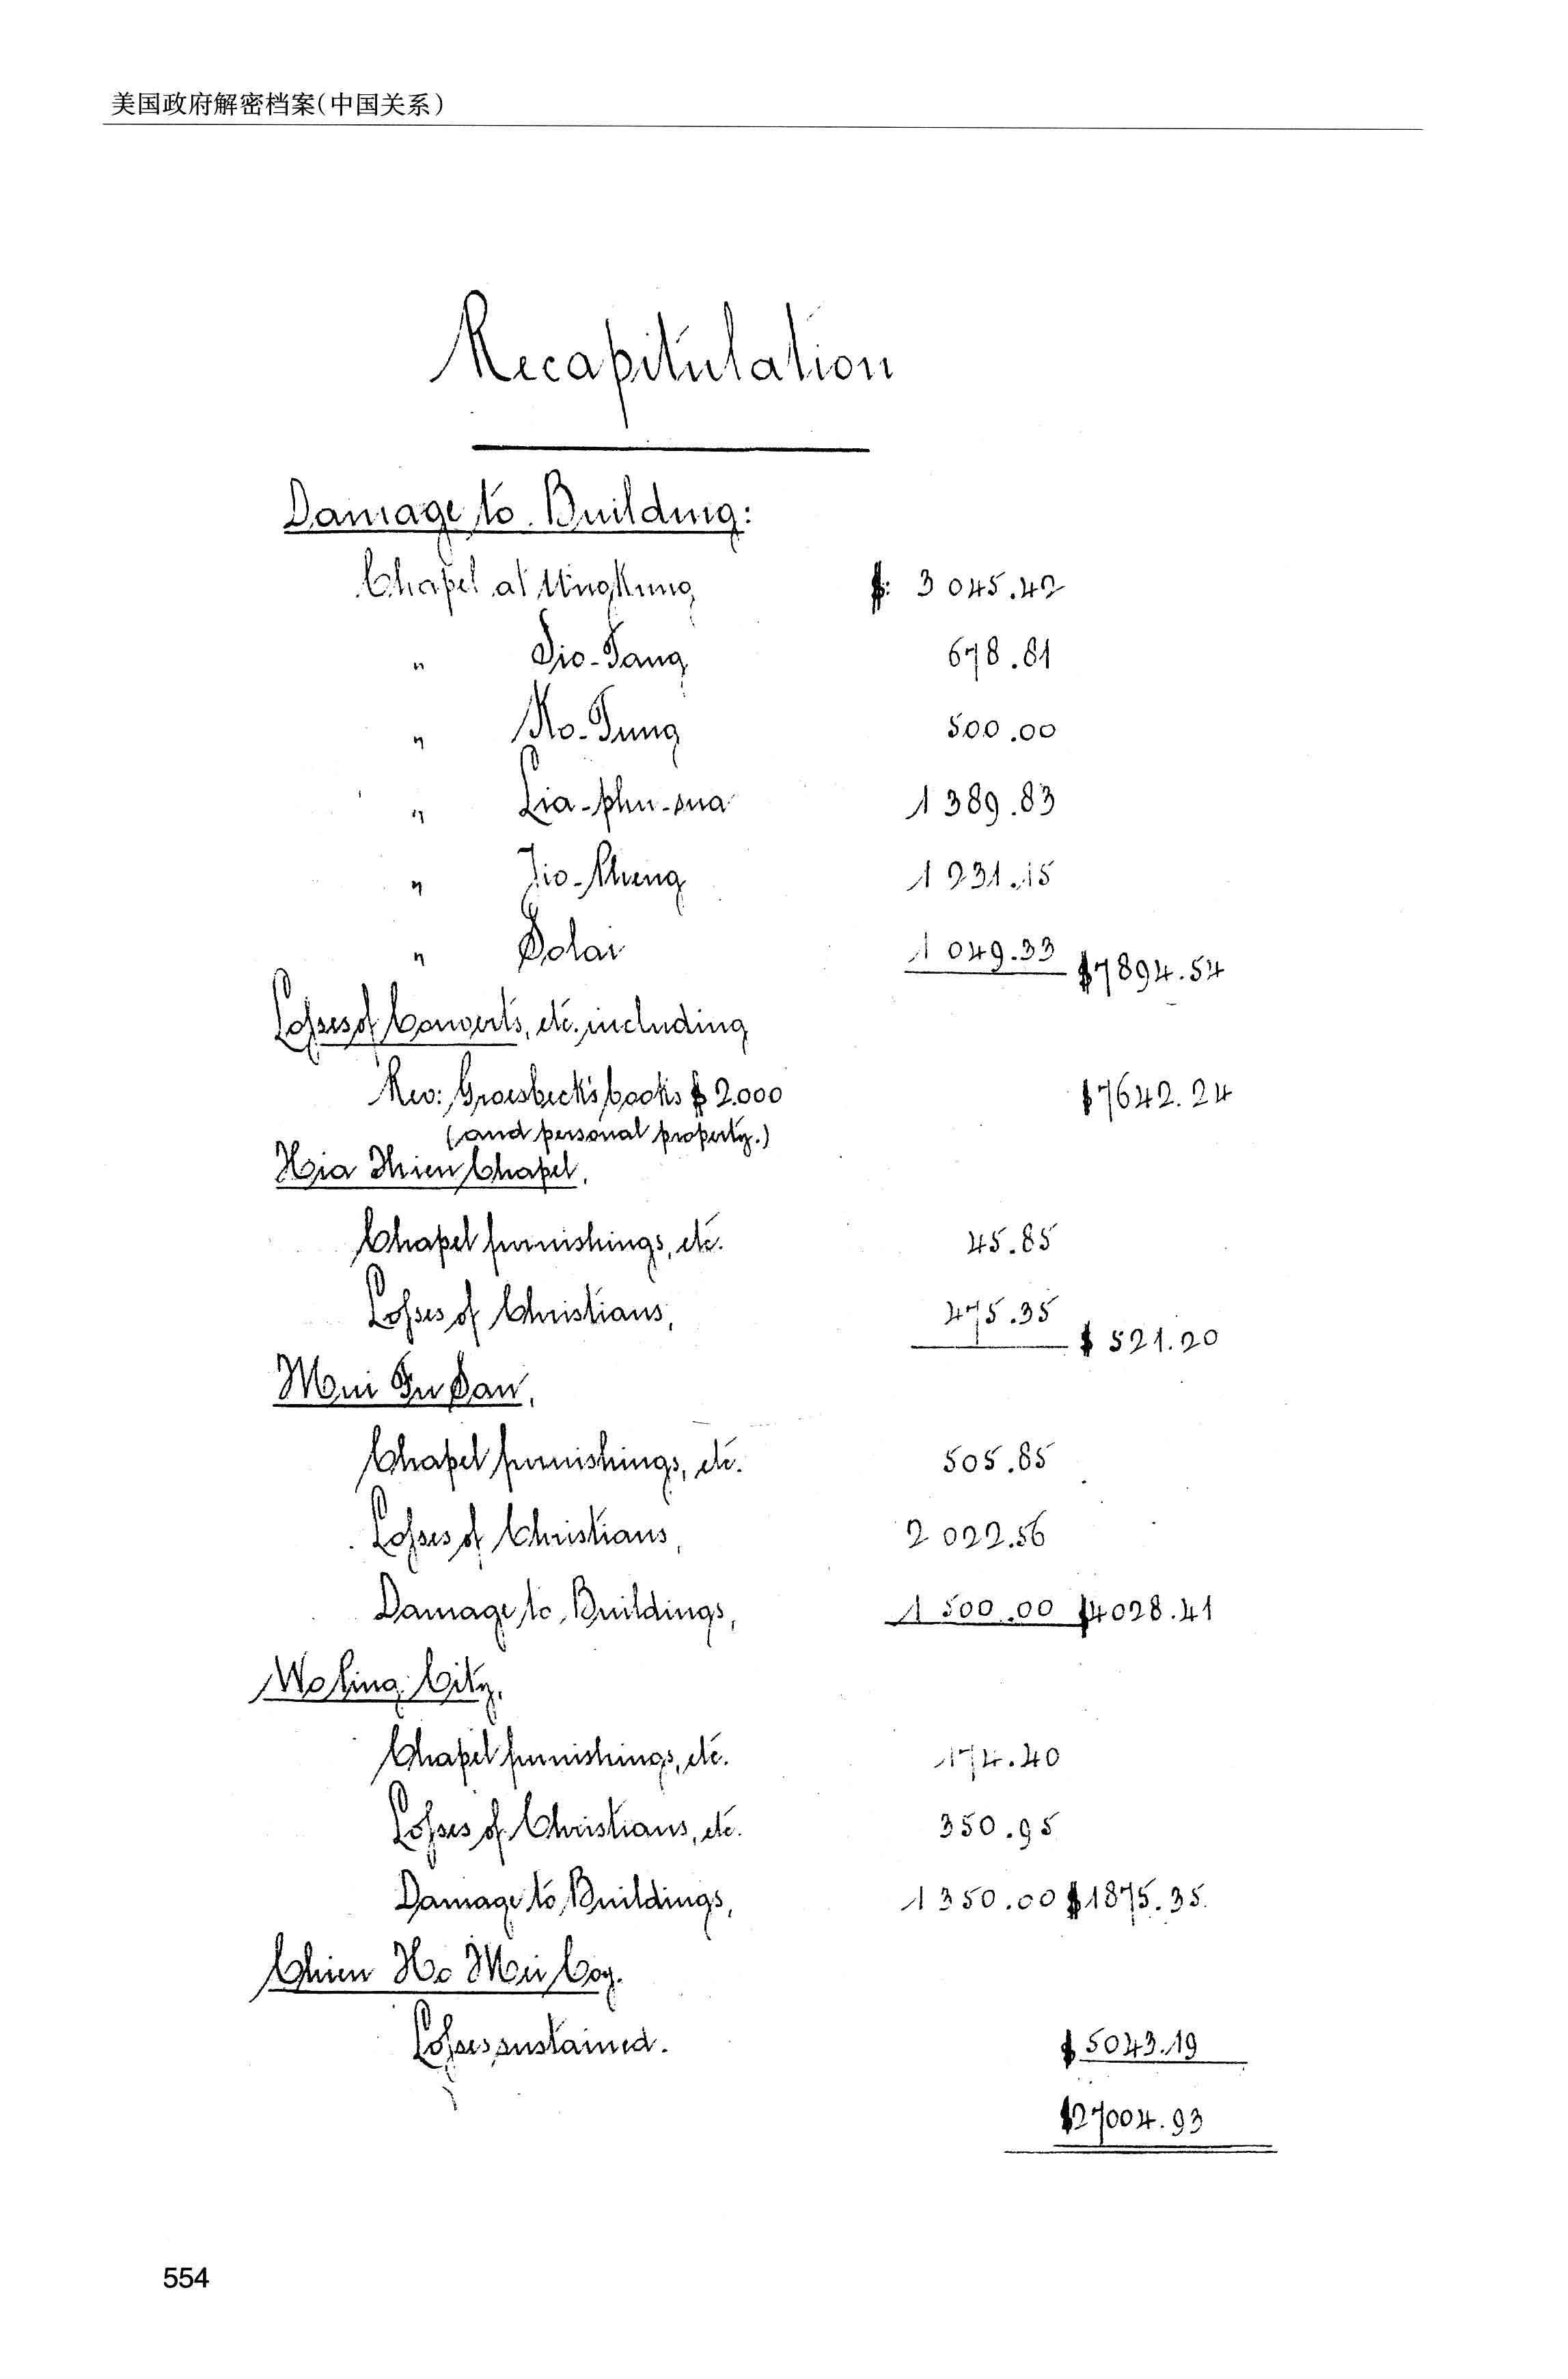 美国政府解密档案(中国关系)
Recapitulation
Damage to Building:
Chapel at Ungkung $: 3 045.42
" Sio-Tang 678.81
" Ko-Tung 500.00
" Lia-phu-sua 1 389.83
" Tio- 1 231.15
" Solai 1 049.33 $7894.54
Losses of Converts, etc. including
Rev: Groesbeck's books $ 2.000 $7642.24
(and personal property.)
Hia Thien Chapel,
Chapel furnishings, etc. 45.85
Losses of Christians, 475.35 $ 521.20
Mui Fu San,
Chapel furnishings, etc. 505.85
Losses of Christians, 2 022.56
Damage to Buildings, 1 500.00 $4028.41
City,
Chapel furnishings, etc. 174.40
Losses of Christians, etc. 350.95
Damage to Buildings, 1 350.00 $1875.35.
Chien Ho Mei Coy.
Losses sustained. $ 5043.19
$27004.93
554